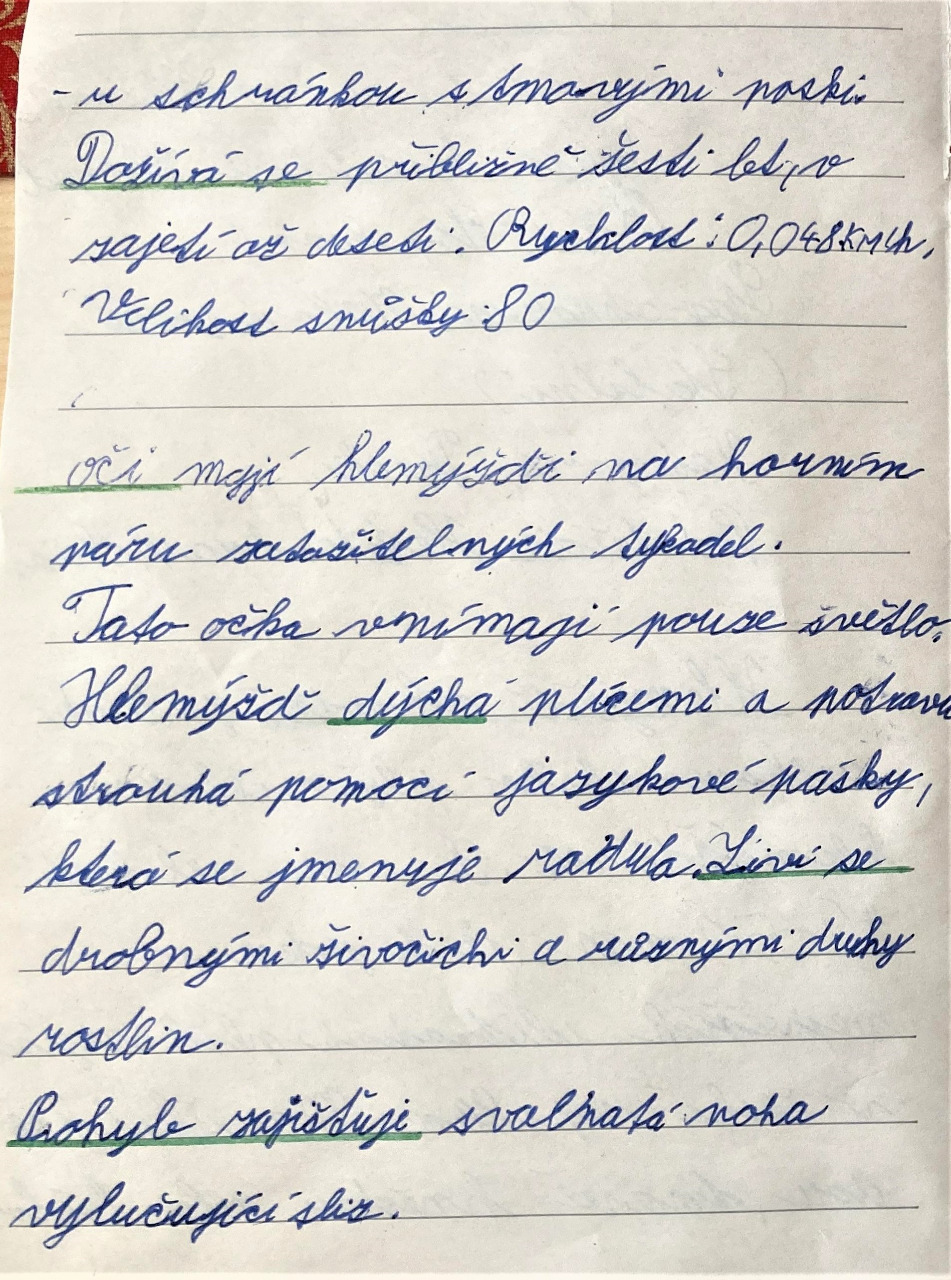 - u schránkou s tmavými poski.
Dožívá se přibližně šesti let, v
zajetí až deseti. Rychlost: 0,048KM/h,
Velikost snůšky :80
oči mají hlemýždi na horním
páru zatažitelných tykadel.
Tato očka vnímají pouze světlo.
Hlemýžď dýchá plícemi a potravu
strouhá pomocí jazykové pásky,
která se jmenuje radula. Živí se
drobnými živočichi a různými druhy
rostlin.
Pohyb zajišťuje svalnatá noha
vylučující sliz.